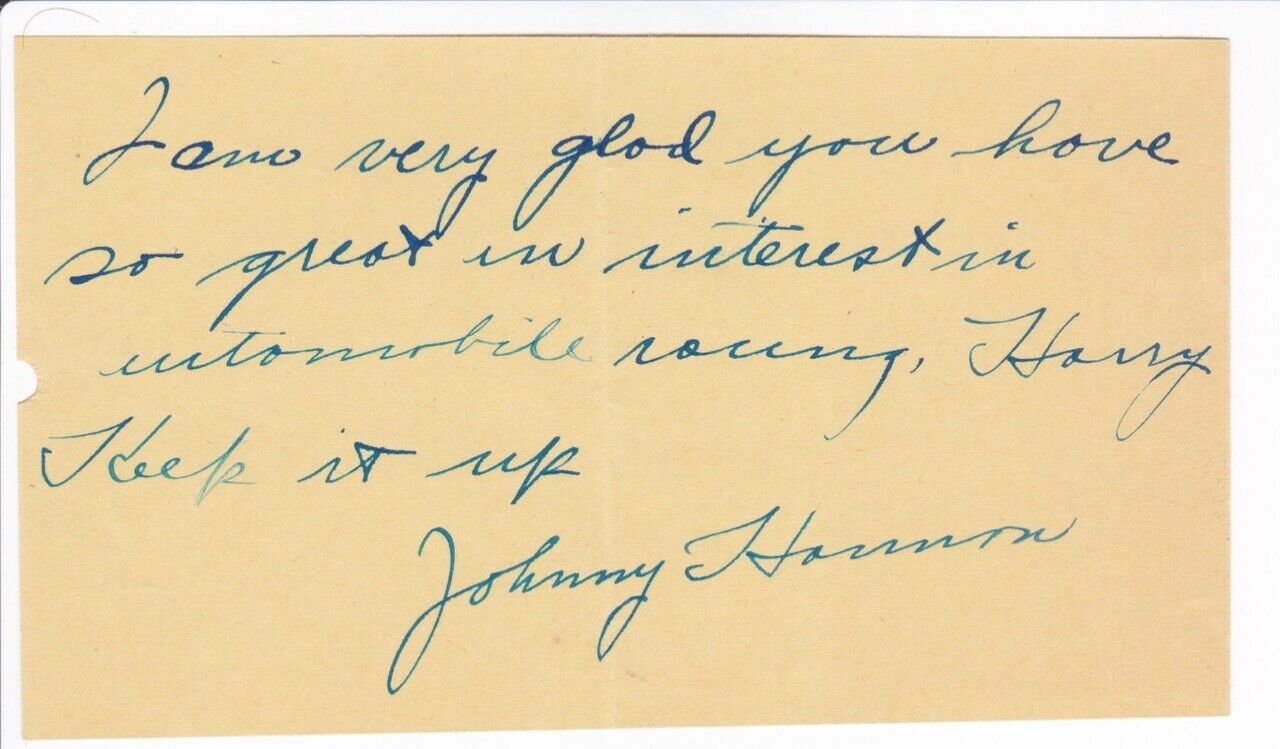 I am very glad you have
so great an interest in
automobile racing, Harry
Keep it up
Johnny Hannon